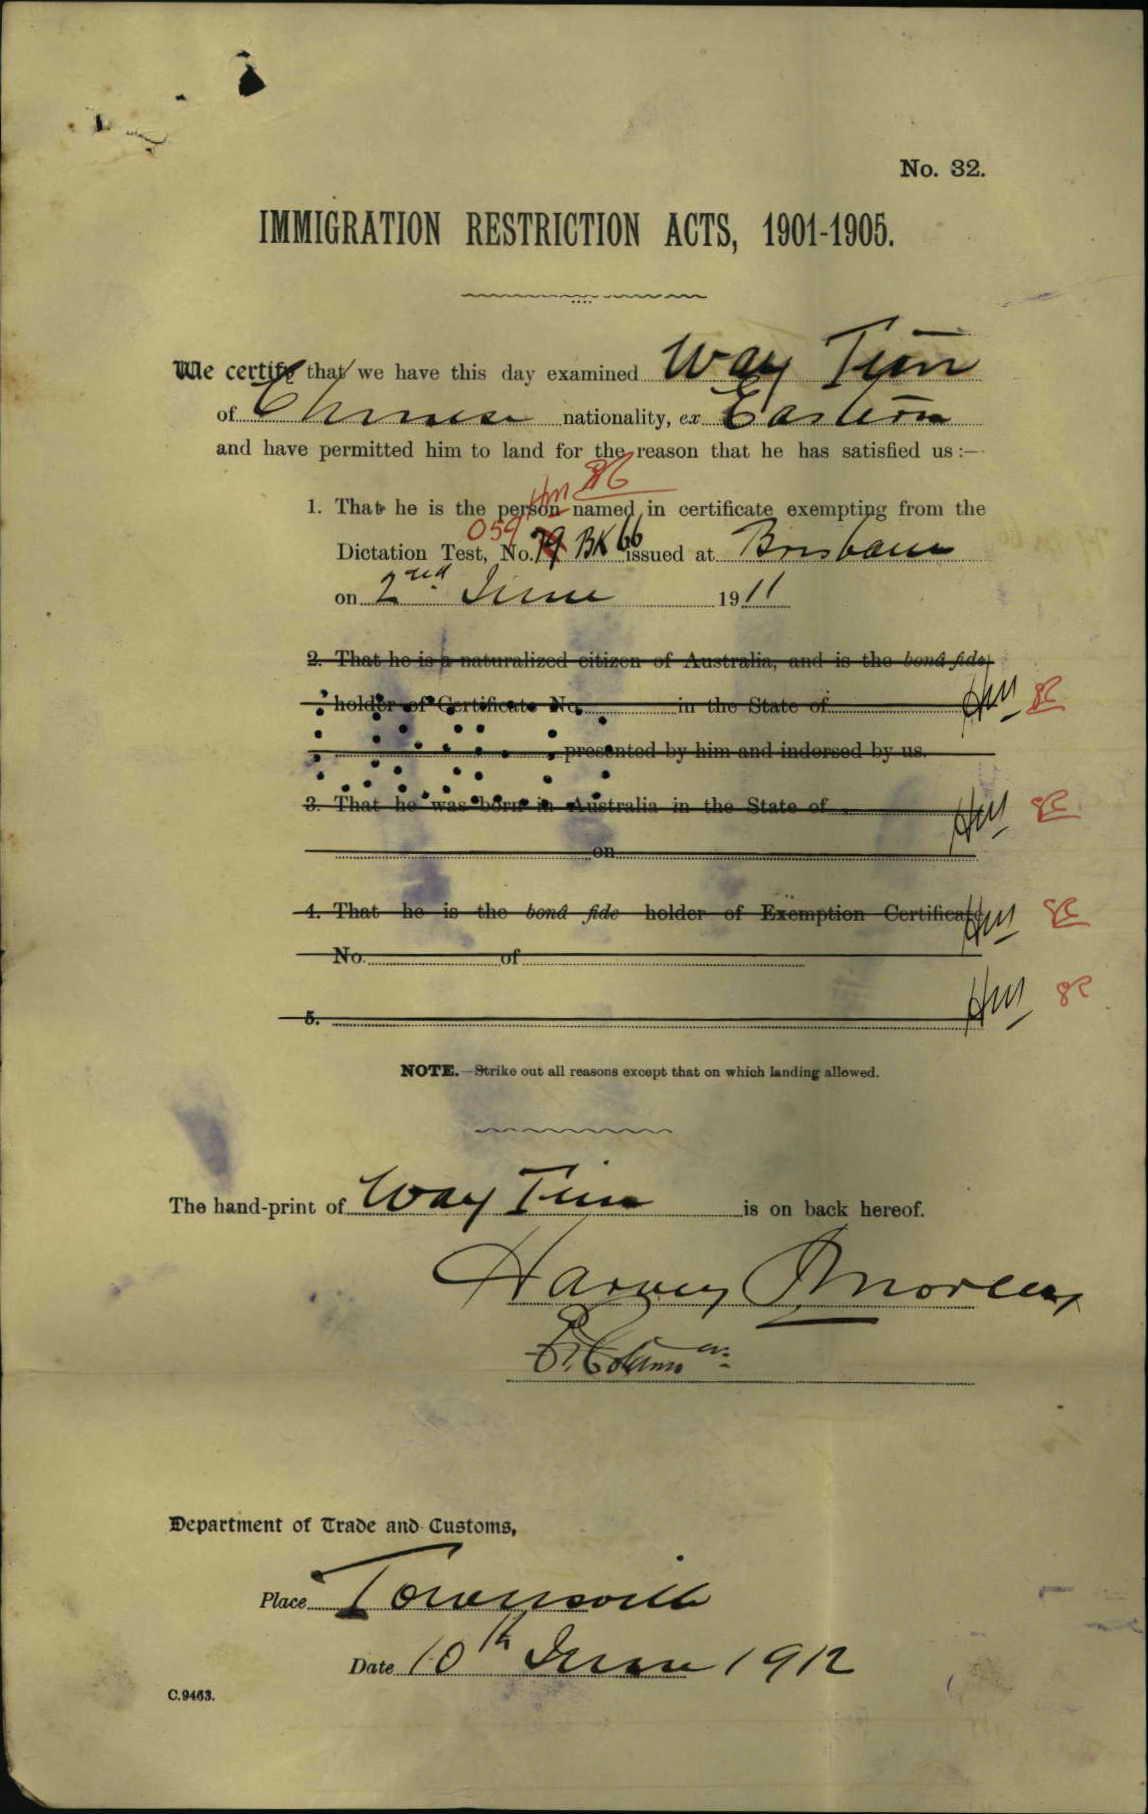 No. 32.
IMMIGRATION RESTRICTION ACTS, 1901-1905.
We certify that we have this day examined Way Tim
of Chinese nationality, ex Eastern
and have permitted him to land for the reason that he has satisfied us :—
1. That he is the person named in certificate exempting from the
059
Dictation Test, No. 79 BK 66 issued at Brisbane
on 2nd June 1911
2. That he is a naturalized citizen of Australia, and is the bonâ fide
holder of Certificate No. in the State of HM
presented by him and indorsed by us.
3. That he was born in Australia in the State of HM
on
4. That he is the bonâ fide holder of Exemption Certificate HM
No. of
5. HM
NOTE.—Strike out all reasons except that on which landing allowed.
The hand-print of Way Tim is on back hereof.
Harvey Morley
Department of Trade and Customs,
Place Townsville
Date 10th June 1912
C.9463.